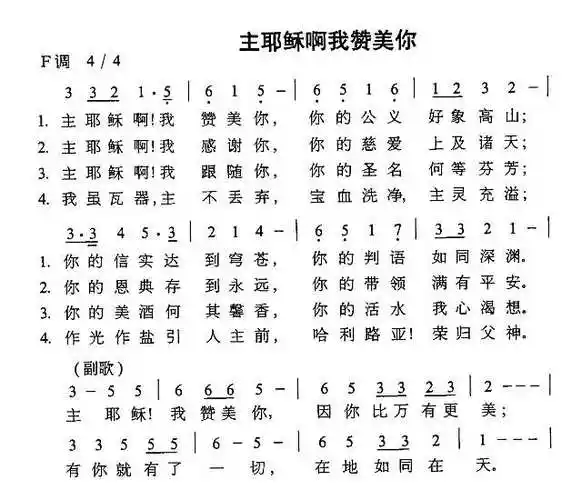 主耶稣啊我赞美你
F调 4/4
3 3 2 1·5 | 6 1 5 - | 6 5 1 6 | 1 2 3 2 - |
1. 主耶稣啊!我 赞美你, 你的公义 好象高山;
2. 主耶稣啊!我 感谢你, 你的慈爱 上及诸天;
3. 主耶稣啊!我 跟随你, 你的圣名 何等芬芳;
4. 我虽瓦器,主 不丢弃, 宝血洗净, 主灵充溢;
3·3 4 5·3 | 2 1 4 - | 6 5 1 7 | 3 3 2 1 - |
1. 你的信实达 到穹苍, 你的判语 如同深渊。
2. 你的恩典存 到永远, 你的带领 满有平安。
3. 你的美酒何 其馨香, 你的活水 我心渴想。
4. 作光作盐引 人主前, 哈利路亚! 荣归父神。
(副歌)
3 - 5 5 | 6 6 6 5 - | 6 5 3 3 2 3 | 2 - - - |
主 耶稣! 我赞美你, 因你比万有更 美;
3 3 5 5 5 | 6 - 5 - | 6 5 3 3 2 3 | 1 - - - |
有你就有了 一切, 在地如同在 天。